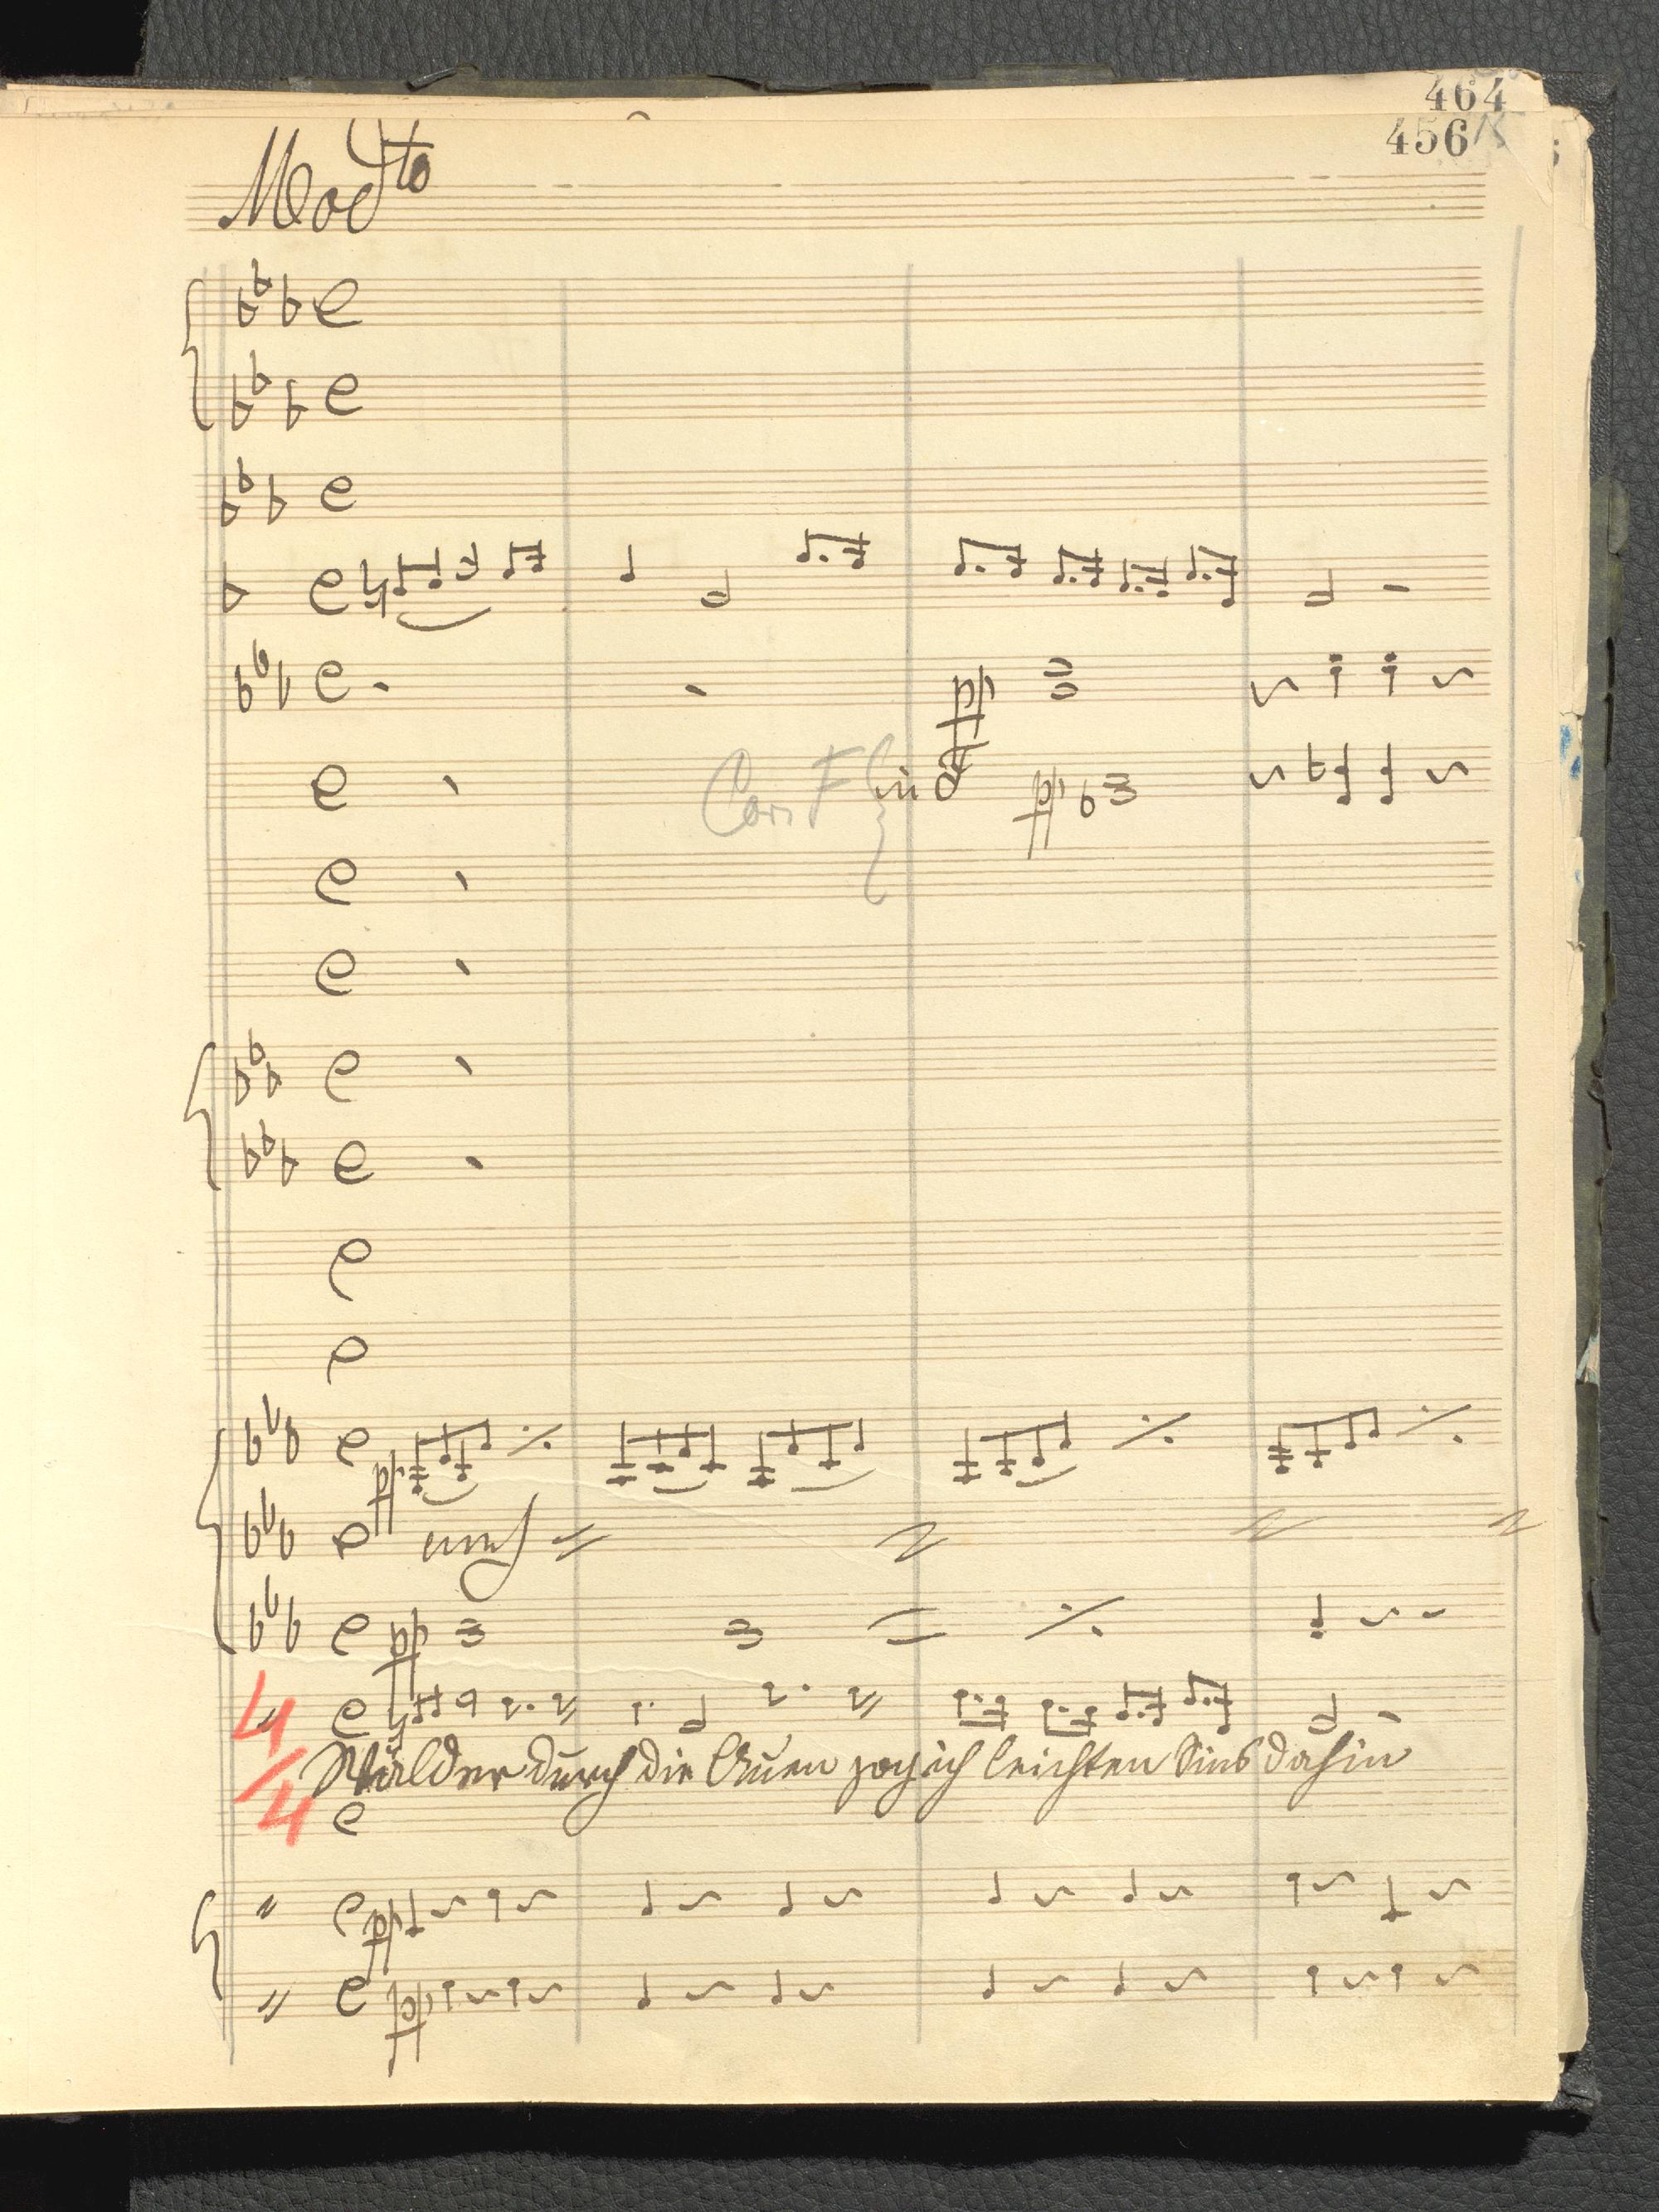 464
456
Modto
Cori F
in F
pp
pp
pp
unis
pp
4/4
Wälder durch die Auen zog ich leichten Sins dahin
pp
pp